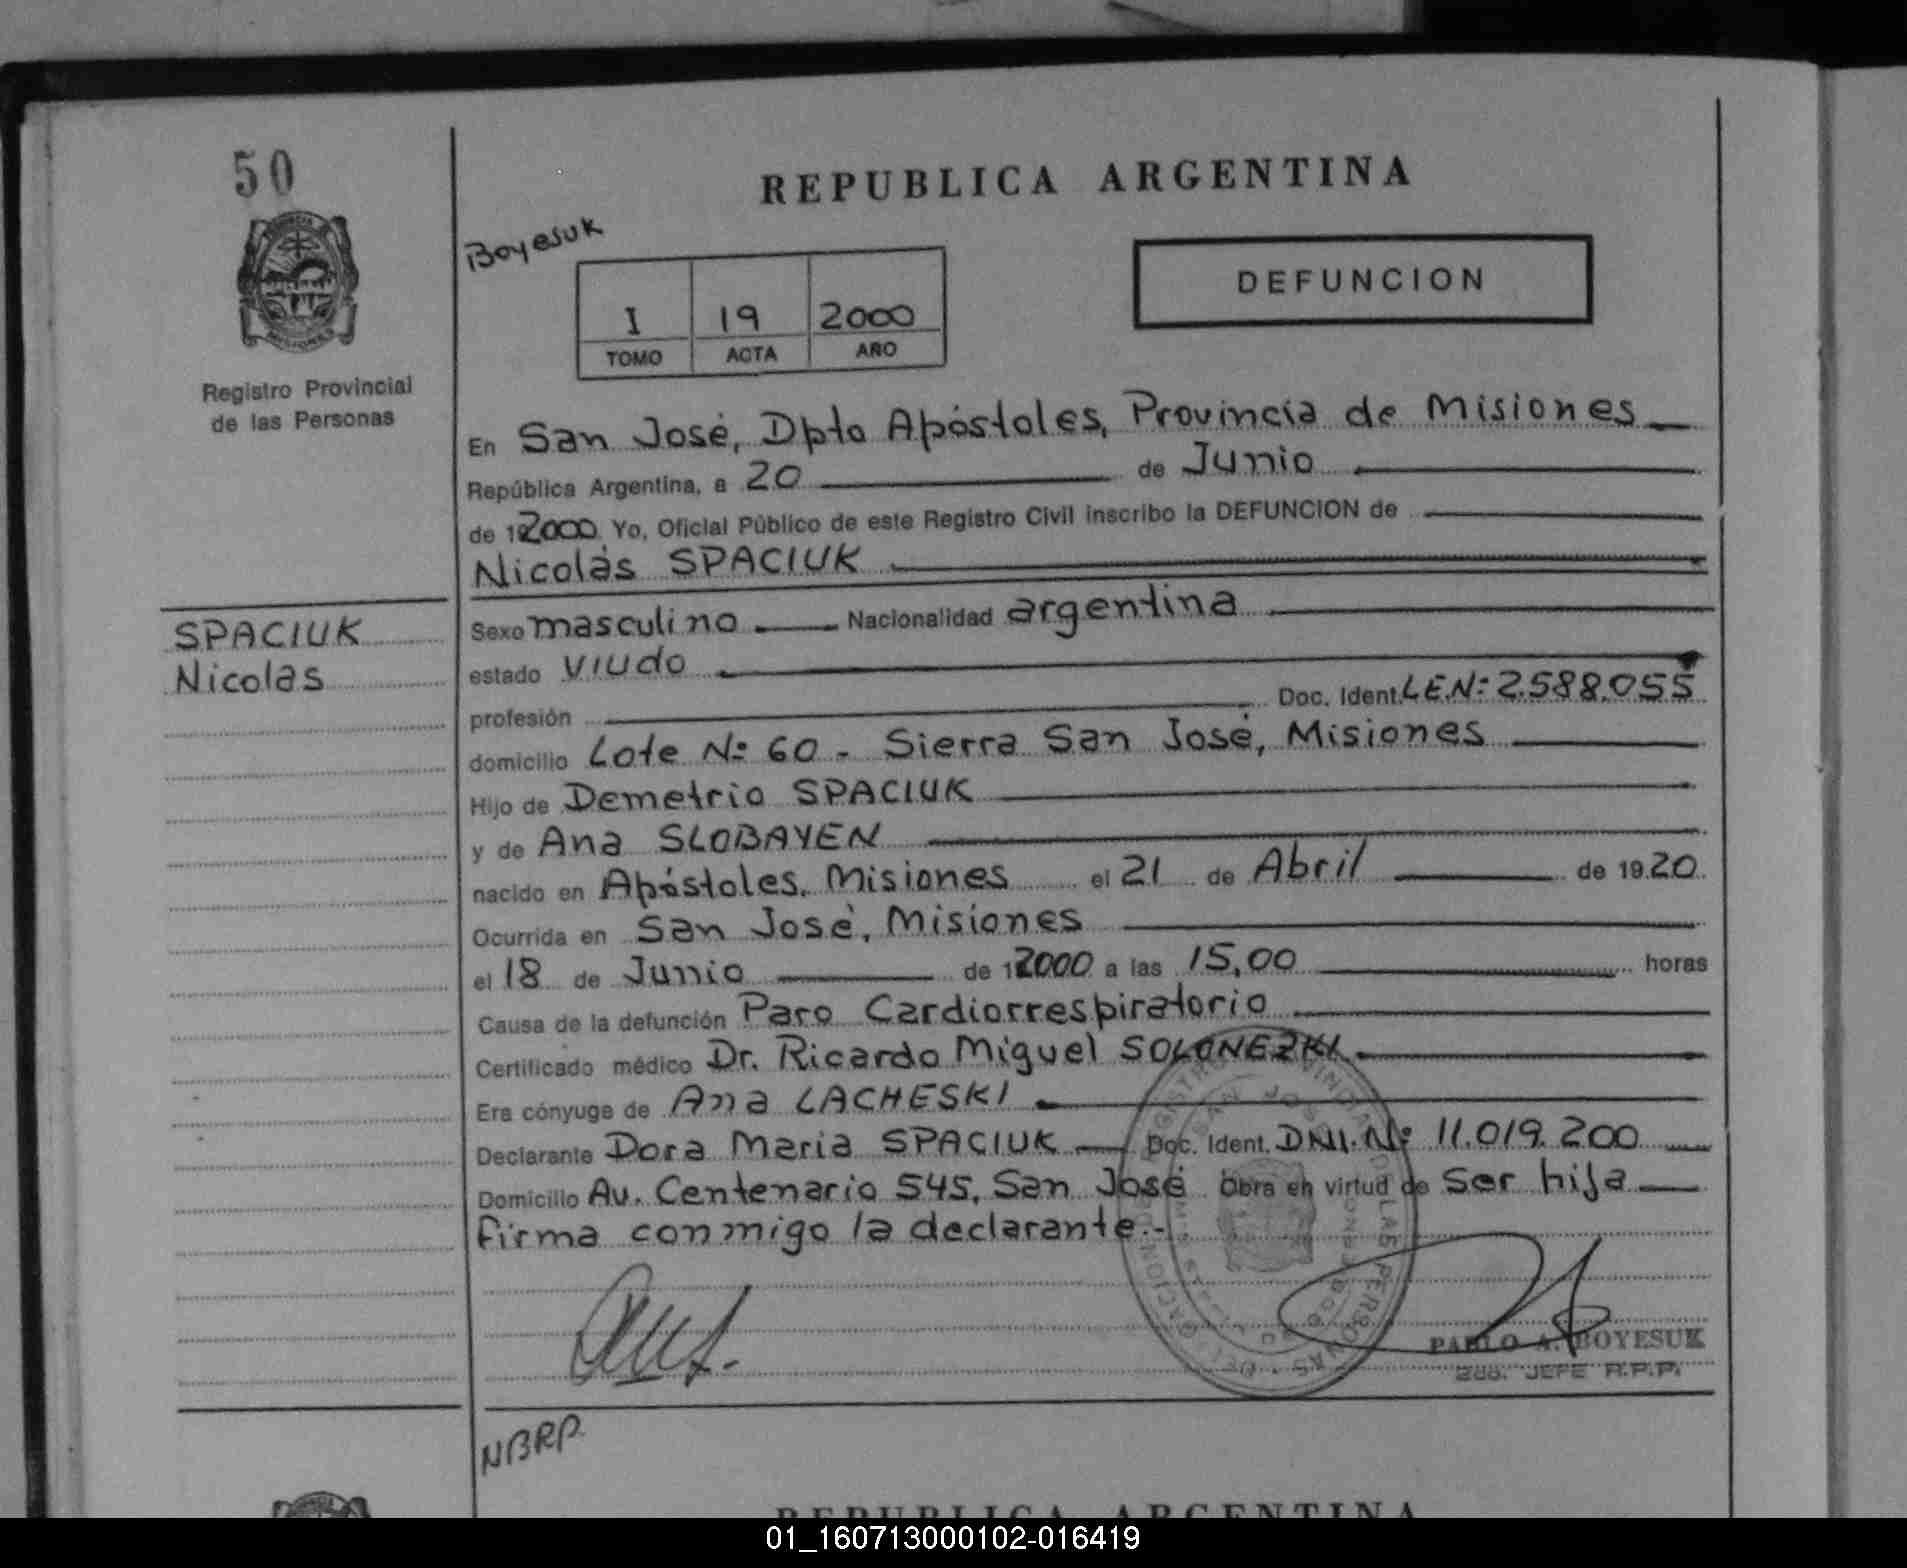 50
REPUBLICA ARGENTINA
Boyesuk
DEFUNCION
I 19 2000
TOMO ACTA AÑO
Registro Provincial
de las Personas
En San José, Dpto Apóstoles, Provincia de Misiones
República Argentina, a 20 de Junio
de 12000 Yo, Oficial Público de este Registro Civil inscribo la DEFUNCION de
Nicolás SPACIUK
SPACIUK
Nicolas
Sexo masculino Nacionalidad argentina
estado viudo
profesión Doc. Ident. L.E.Nº 2.588.055
domicilio Lote Nº 60 - Sierra San José, Misiones
Hijo de Demetrio SPACIUK
y de Ana SLOBAYEN
nacido en Apóstoles, Misiones el 21 de Abril de 1920
Ocurrida en San José, Misiones
el 18 de Junio de 12000 a las 15,00 horas
Causa de la defunción Paro Cardiorrespiratorio
Certificado médico Dr. Ricardo Miguel SOLONEZKI
Era cónyuge de Ana LACHESKI
Declarante Dora Maria SPACIUK Doc. Ident. DNI. Nº 11.019.200
Domicilio Av. Centenario 545, San José Obra en virtud de ser hija
firma conmigo la declarante.-
PABLO A. BOYESUK
2do. JEFE R.P.P.
NBRP.
REPUBLICA ARGENTINA
01_160713000102-016419